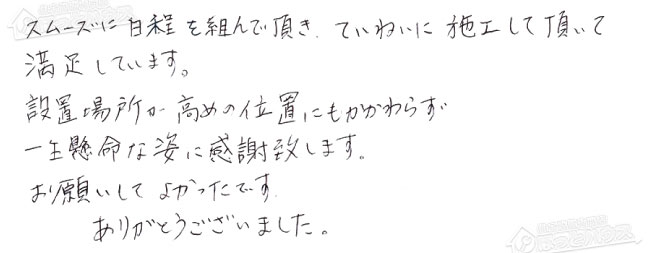 スムーズに日程を組んで頂き、ていねいに施工して頂いて
満足しています。
設置場所が高めの位置にもかかわらず
一生懸命な姿に感謝致します。
お願いしてよかったです
ありがとうございました。